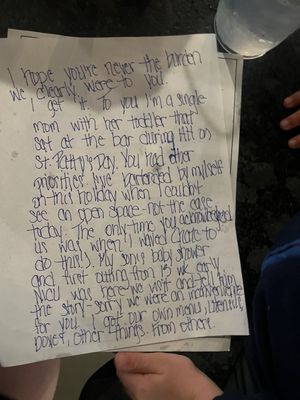 I hope you're never the burden
we clearly were to you.
I get it to you I'm a single
mom with her toddler that
sat at the bar during HH on
St. Patty's Day. You had other
priorities. I've bartended by myself
on this holiday when I couldn't
see an open space - not the case
today. The only time you acknowledged
us was when I waved (hate to
do this!). My son's baby shower
and first outing from 13 wk early
NICU was here - we visit and tell him
the story. Sorry we were an inconvenience
for you. I got our own menu, utensils,
boxes, other things from others.